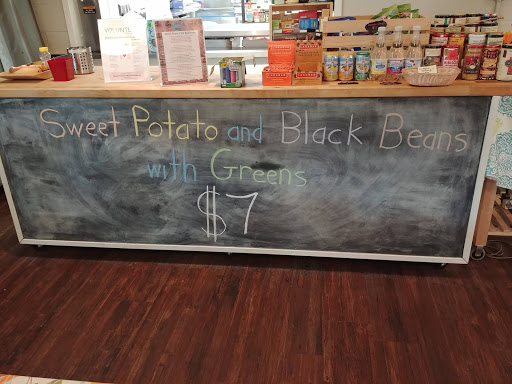 Sweet Potato and Black Beans
with Greens
$7